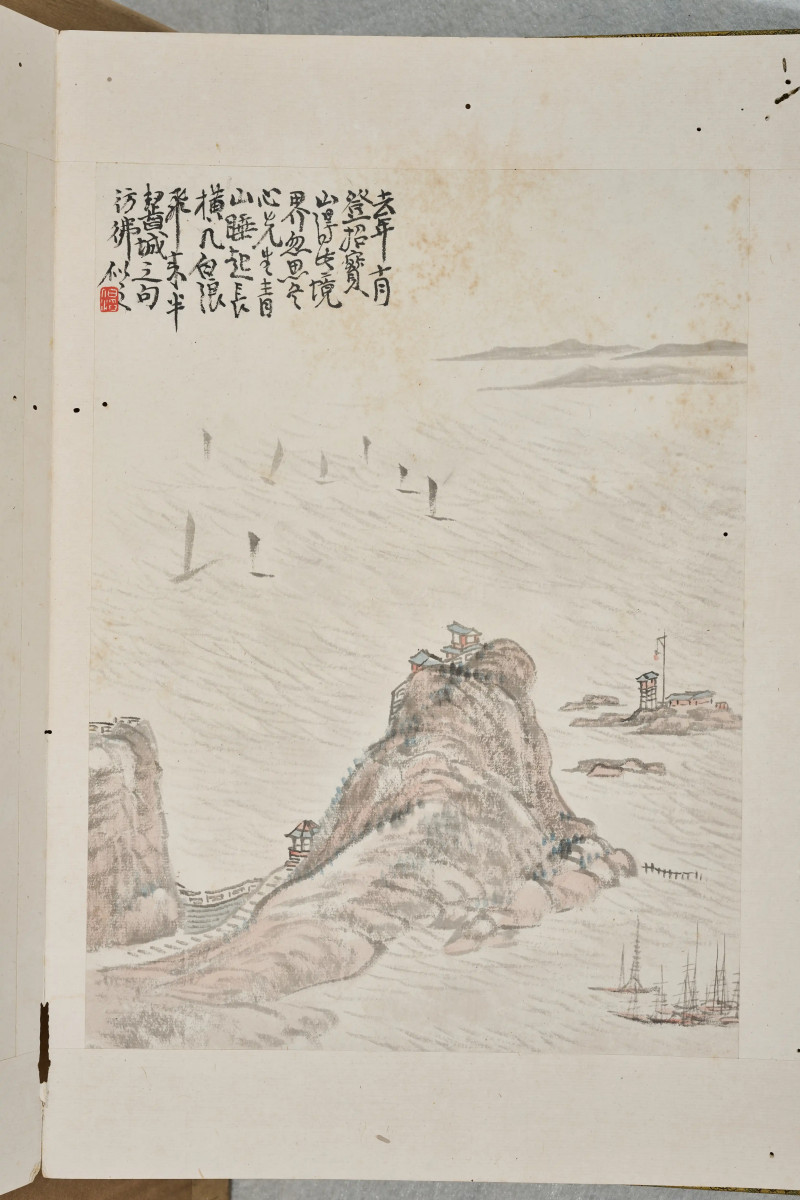 去年十月
登招寶
山得此境
界忽思冬
心先生青
山睡起長
橫几白浪
飛來半
齧城之句
彷彿似之